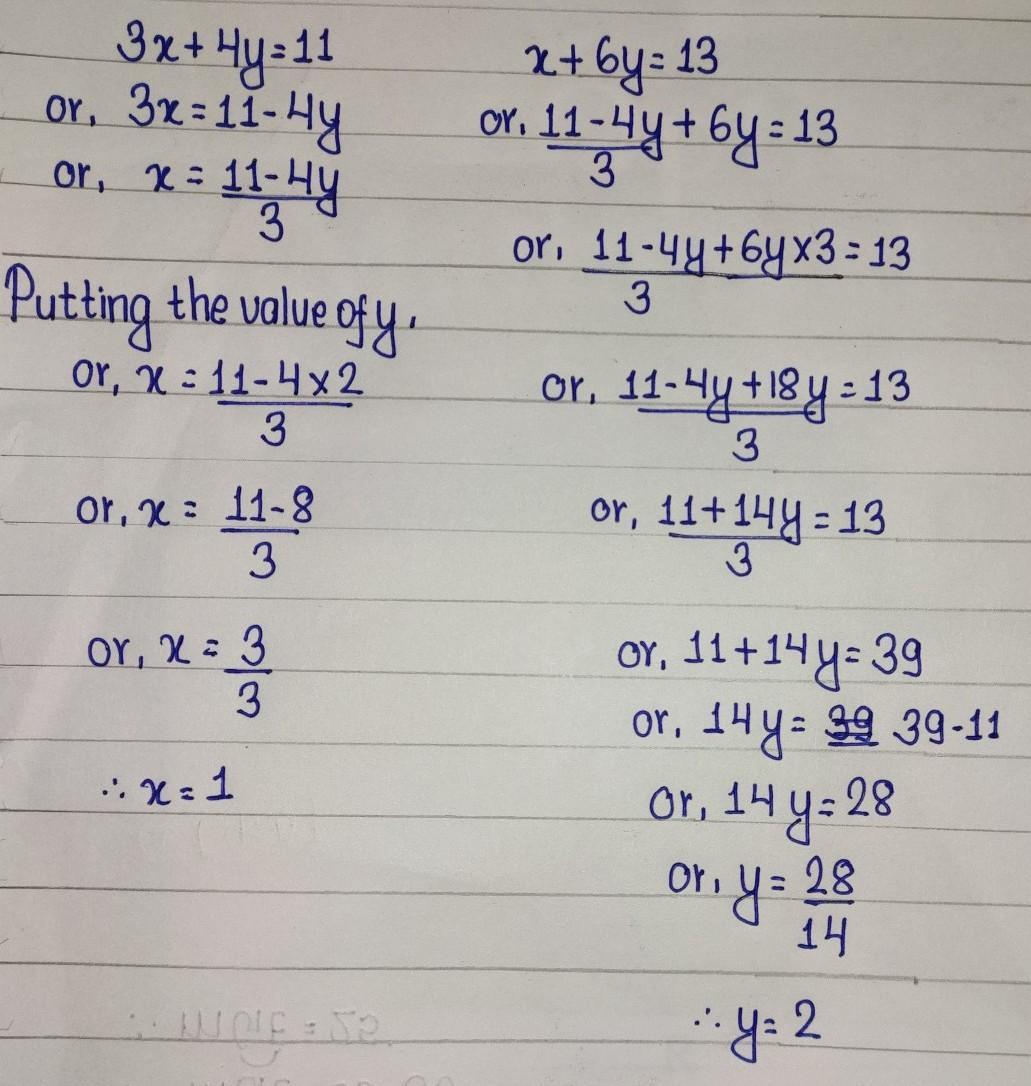 3x+4y=11
or, 3x=11-4y
or, x = 11-4y
3
Putting the value of y.
or, x = 11-4×2
3
or, x = 11-8
3
or, x = 3
3
∴ x = 1
x+6y=13
or, 11-4y+6y=13
3
or, 11-4y+6y×3=13
3
or, 11-4y+18y=13
3
or, 11+14y=13
3
or, 11+14y=39
or, 14y= 39 39-11
or, 14y=28
or, y= 28
14
∴ y= 2